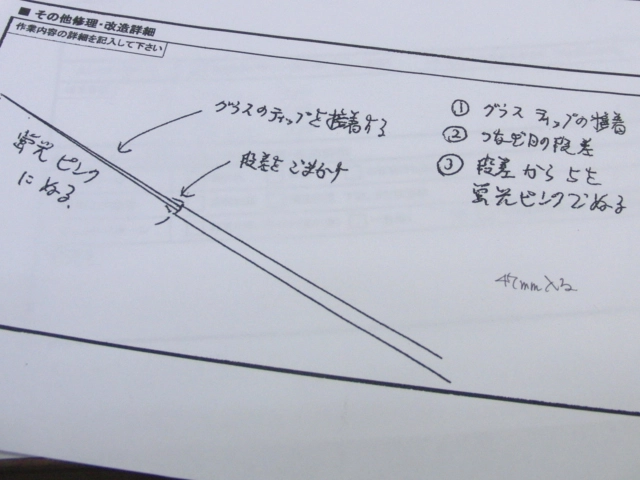 ■ その他修理・改造詳細
作業内容の詳細を記入して下さい
グラスのティップを接着する
段差をごまかす
蛍光ピンク
にぬる.
① グラスティップの接着
② つなぎ目の段差
③ 段差から上を
蛍光ピンクでぬる